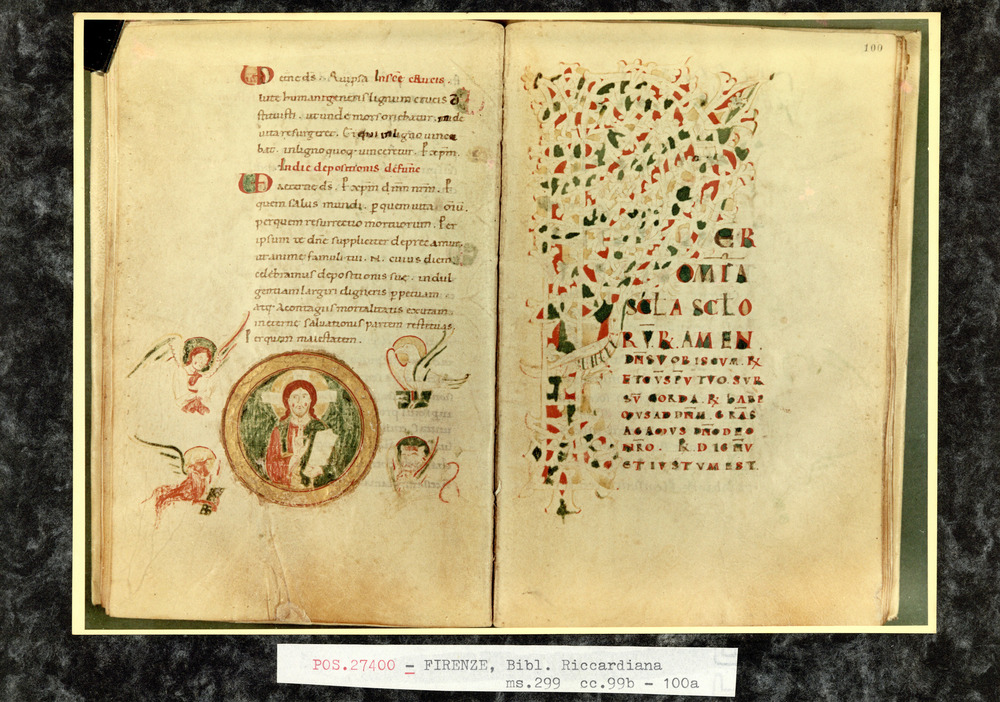 eterne ds. Qui ipsa In sce cRucis.
lute humani generis lignum crucis
stituisti. ut unde mors oriebatur. inde
uita resurgeret. Et qui in ligno uince
bat. in ligno quoq. uinceretur. P xpm.
In die depositionis defunc
aeterne ds. P xpm dnm nrm. P
quem salus mundi. p quem uita
perquem resurrectio mortuorum. Per
ipsum te dne suppliciter deprecamur
ut anime famuli tui. N. cuius diem
celebramus depositionis sue. indul
gentiam largiri digneris ppetuam.
atq. a contagiis mortalitatis exutam
in eterne saluationis partem restituas.
Perquem maiestatem.
100
ER
OMIA
SCLA SCLO
RVR. AMEN
DNS VOBISCVM. R
ET CVS PV TVO. SVR
SV CORDA. R. HABE
MVS AD DNM. GRAS
AGAMVS DNO DEO
NRO. R. DIGNV
ET IVSTVM EST.
POS.27400 - FIRENZE, Bibl. Riccardiana
ms.299 cc.99b - 100a